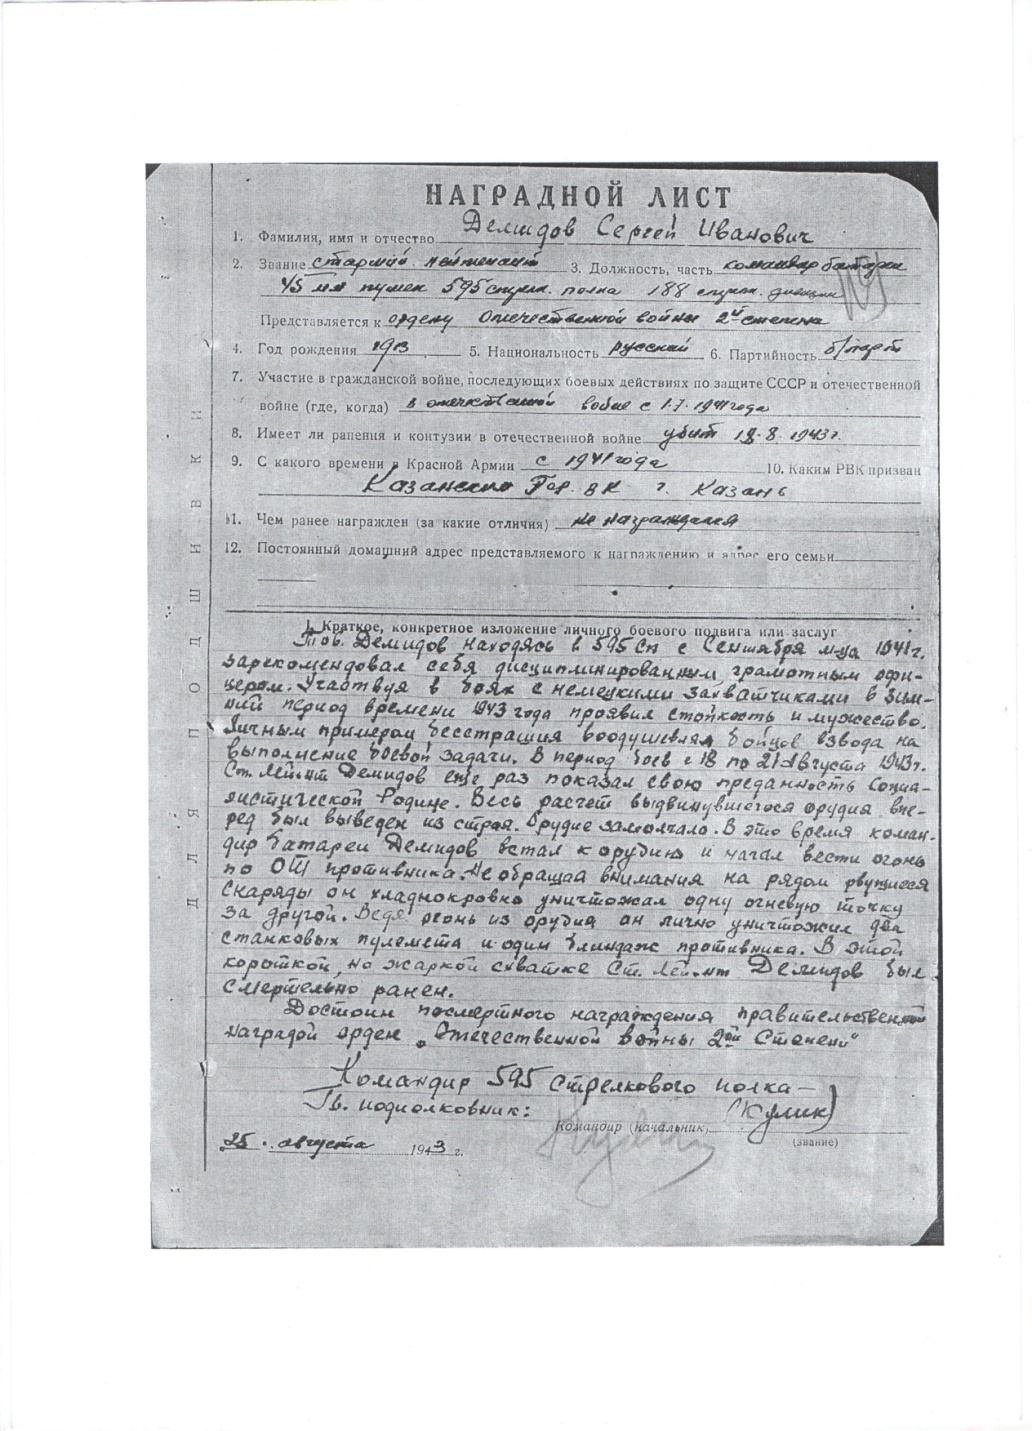 НАГРАДНОЙ ЛИСТ
1. Фамилия, имя и отчество Демидов Сергей Иванович
2. Звание старший лейтенант 3. Должность, часть командир батареи
45 мм пушек 595 стрелк. полка 188 стрелк. дивизии
Представляется к ордену Отечественной войны 2й степени
4. Год рождения 1913 5. Национальность русский 6. Партийность б/парт
7. Участие в гражданской войне, последующих боевых действиях по защите СССР и отечественной
войне (где, когда) в отечественной войне с 1.7.1941 года
8. Имеет ли ранения и контузии в отечественной войне убит 18.8.1943 г.
9. С какого времени в Красной Армии с 1941 года 10. Каким РВК призван
Казанским Гор. ВК г. Казань
11. Чем ранее награжден (за какие отличия) не награждался
12. Постоянный домашний адрес представляемого к награждению и адрес его семьи
I. Краткое, конкретное изложение личного боевого подвига или заслуг
Тов. Демидов находясь в 595 сп с Сентября м-ца 1941 г.
зарекомендовал себя дисциплинированным грамотным офи-
цером. Участвуя в боях с немецкими захватчиками в зим-
ний период времени 1943 года проявил стойкость и мужество.
Личным примером бесстрашия воодушевлял бойцов взвода на
выполнение боевой задачи. В период боев с 18 по 21 Августа 1943 г.
Ст. Лейт-нт Демидов еще раз показал свою преданность Социа-
листической Родине. Весь расчет выдвинувшегося орудия впе-
ред был выведен из строя. Орудие замолчало. В это время коман-
дир батареи Демидов встал к орудию и начал вести огонь
по ОТ противника. Не обращая внимания на рядом рвущиеся
снаряды он хладнокровно уничтожал одну огневую точку
за другой. Ведя огонь из орудия он лично уничтожил два
станковых пулемета и один блиндаж противника. В этой
короткой, но жаркой схватке Ст. Лейт-нт Демидов был
смертельно ранен.
Достоин посмертного награждения правительственной
наградой орден „Отечественной Войны 2ой Степени"
Командир 595 стрелкового полка –
Гв. подполковник: (Кулик)
Командир (начальник)
(звание)
25. августа 1943 г.
ДЛЯ ПОДШИВКИ